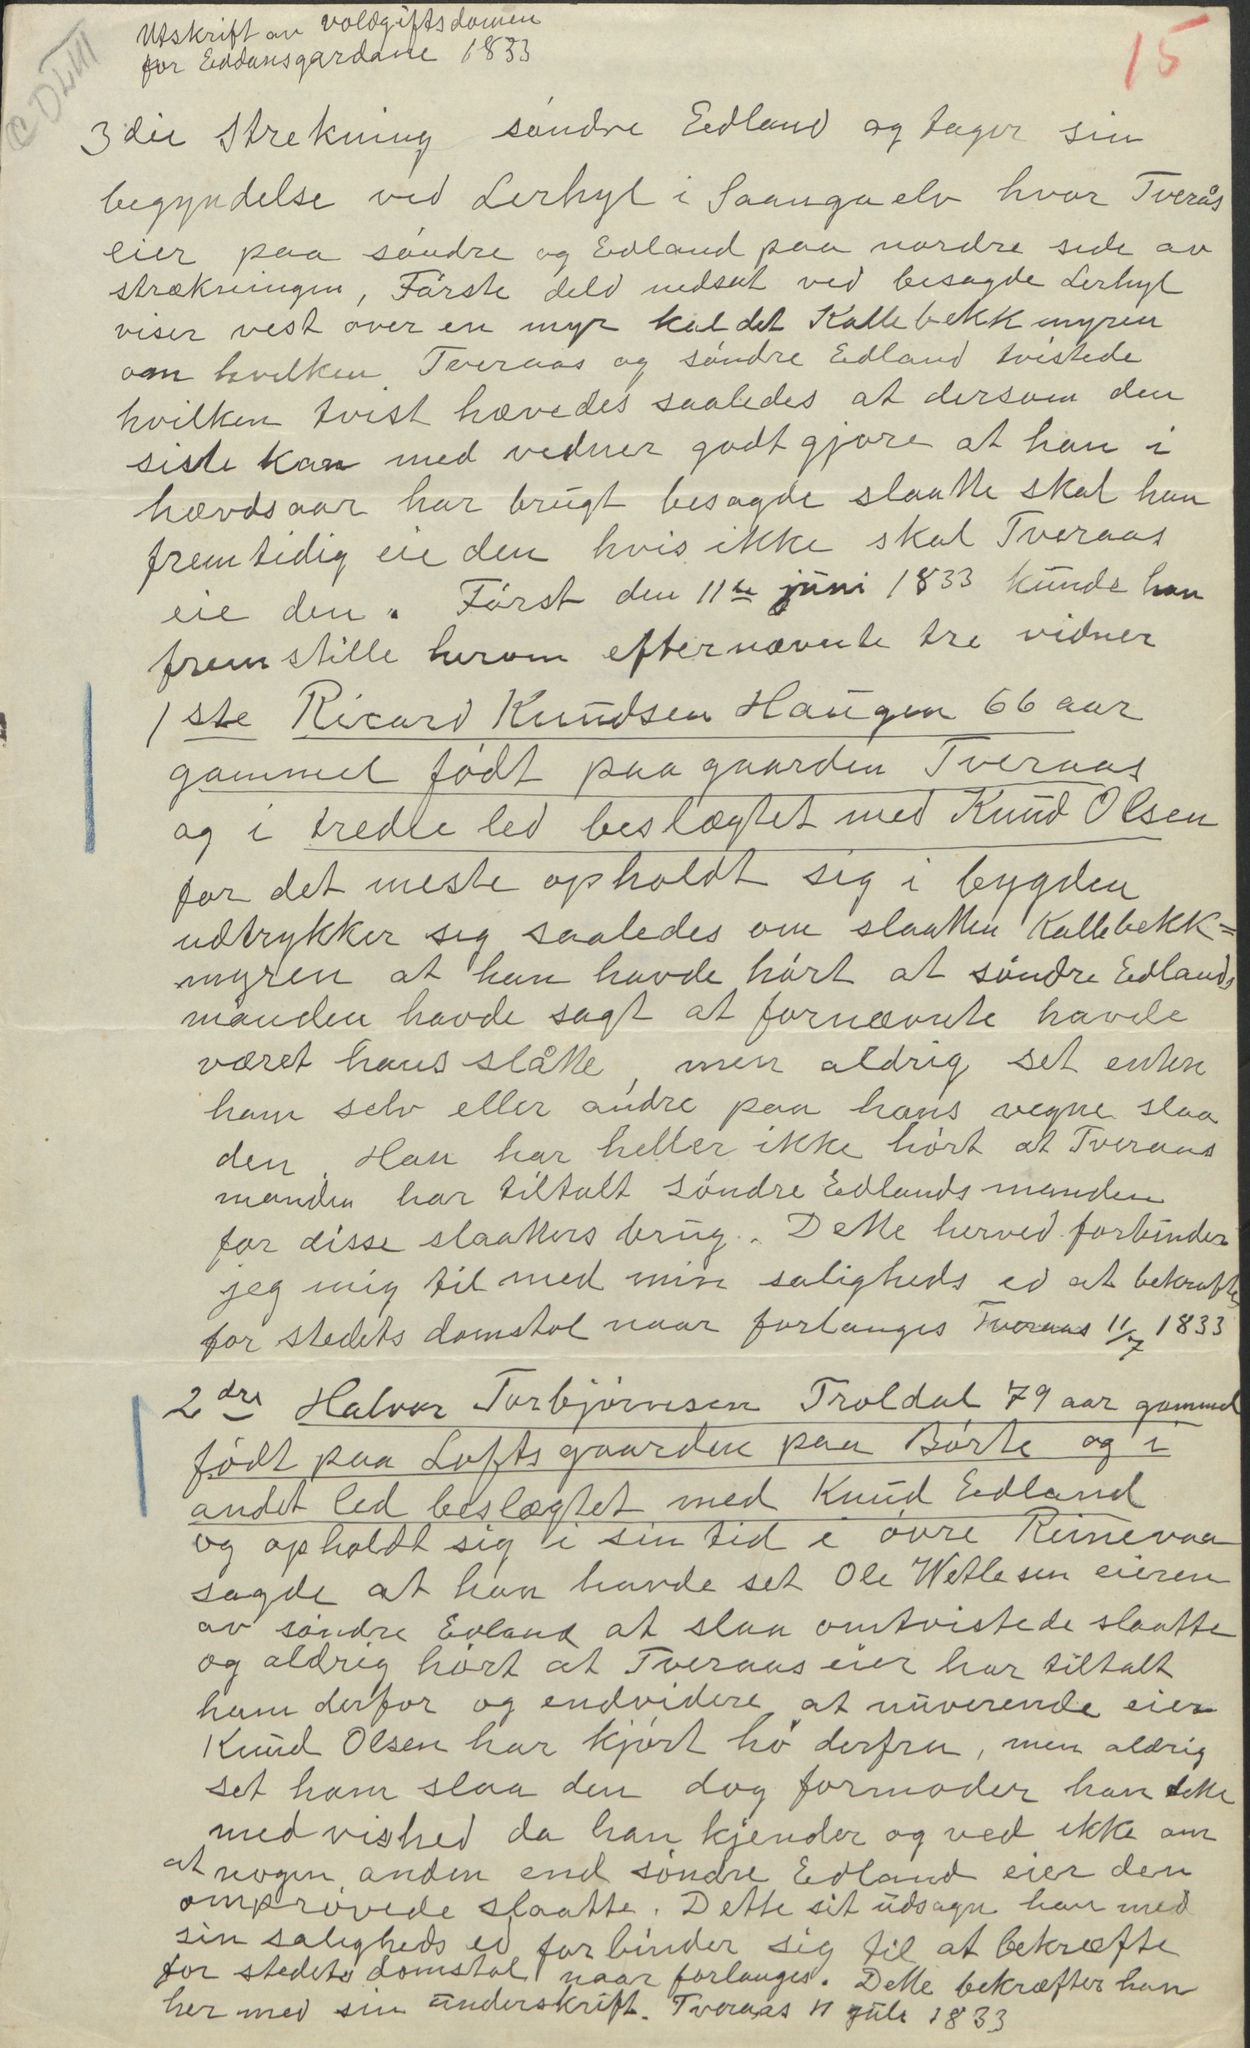 Utskrift av voldgiftsdomen
for Eddansgardane 1833
15
3die Strekning søndre Edland og tager sin
begyndelse ved Lerhyl i Saanga elv hvor Tverås
eier paa søndre og Edland paa nordre side av
strækningen, Første deld nedsat ved besagde Lerhyl
viser vest over en myr kaldet Kallebekkmyren
om hvilken Tveraas og søndre Edland tvistede
hvilken tvist hævedes saaledes at dersom den
siste kan med vedner godtgjøre at han i
hævdsaar har brugt besagde slaatte skal han
fremtidig eie den hvis ikke skal Tveraas
eie den. Først den 11te juni 1833 kunde han
fremstille herom efternævnte tre vidner
1ste Ricard Knudsen Haugen 66 aar
gammel født paa gaarden Tveraas
og i tredie led beslægtet med Knud Olsen
for det meste opholdt sig i bygden
udtrykker sig saaledes om slaatten Kallebekk=
myren at han havde hørt at søndre Edlands
manden havde sagt at fornævnte havde
været hans slåtte, men aldrig set enten
ham selv eller andre paa hans vegne slaa
den. Han har heller ikke hørt at Tveraas
manden har tiltalt søndre Edlands manden
for disse slaatters brug. Dette herved forbinder
jeg mig til med min saligheds ed at bekræfte
for stedets domstol naar forlanges Tveraas 11/7 1833
2dre Halvor Torbjørnsen Troldal 79 aar gammel
født paa Loftsgaarden paa Børte og i
andet led beslægtet med Knud Edland
og opholdt sig i sin tid i øvre Rinevaa
sagde at han havde set Ole Wetlesen eieren
av søndre Edland at slaa omtvistede slaatte
og aldrig hørt at Tveraas eier har tiltalt
ham derfor og endvidere at nuverende eier
Knud Olsen har kjørt hø derfra, men aldrig
set ham slaa den dog formoder han dette
med vished da han kjender og ved ikke om
at nogen anden end søndre Edland eier den
omprøvede slaatte. Dette sit udsagn han med
sin saligheds ed forbinder sig til at bekræfte
for stedets domstol naar forlanges. Dette bekræfter han
her med sin underskrift. Tveraas 11 juli 1833